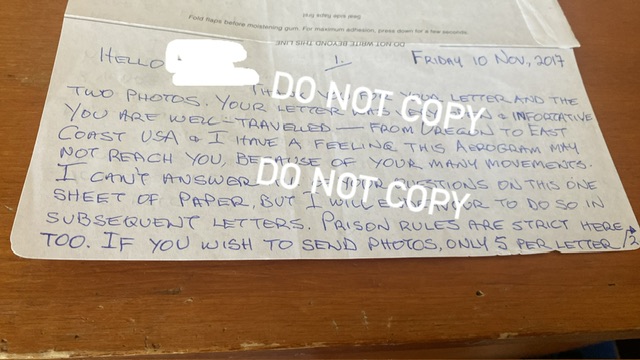 Fold flaps before moistening gum. For maximum adhesion, press down for a few seconds.
DO NOT WRITE BEYOND THIS LINE
HELLO
1.
FRIDAY 10 NOV., 2017
YOUR LETTER AND THE
TWO PHOTOS. YOUR LETTER WAS & INFORMATIVE
YOU ARE WELL-TRAVELLED — FROM OREGON TO EAST
COAST USA & I HAVE A FEELING THIS AEROGRAM MAY
NOT REACH YOU, BECAUSE OF YOUR MANY MOVEMENTS.
I CAN'T ANSWER YOUR QUESTIONS ON THIS ONE
SHEET OF PAPER, BUT I WILL ENDEAVOUR TO DO SO IN
SUBSEQUENT LETTERS. PRISON RULES ARE STRICT HERE
TOO. IF YOU WISH TO SEND PHOTOS, ONLY 5 PER LETTER /2
DO NOT COPY
DO NOT COPY